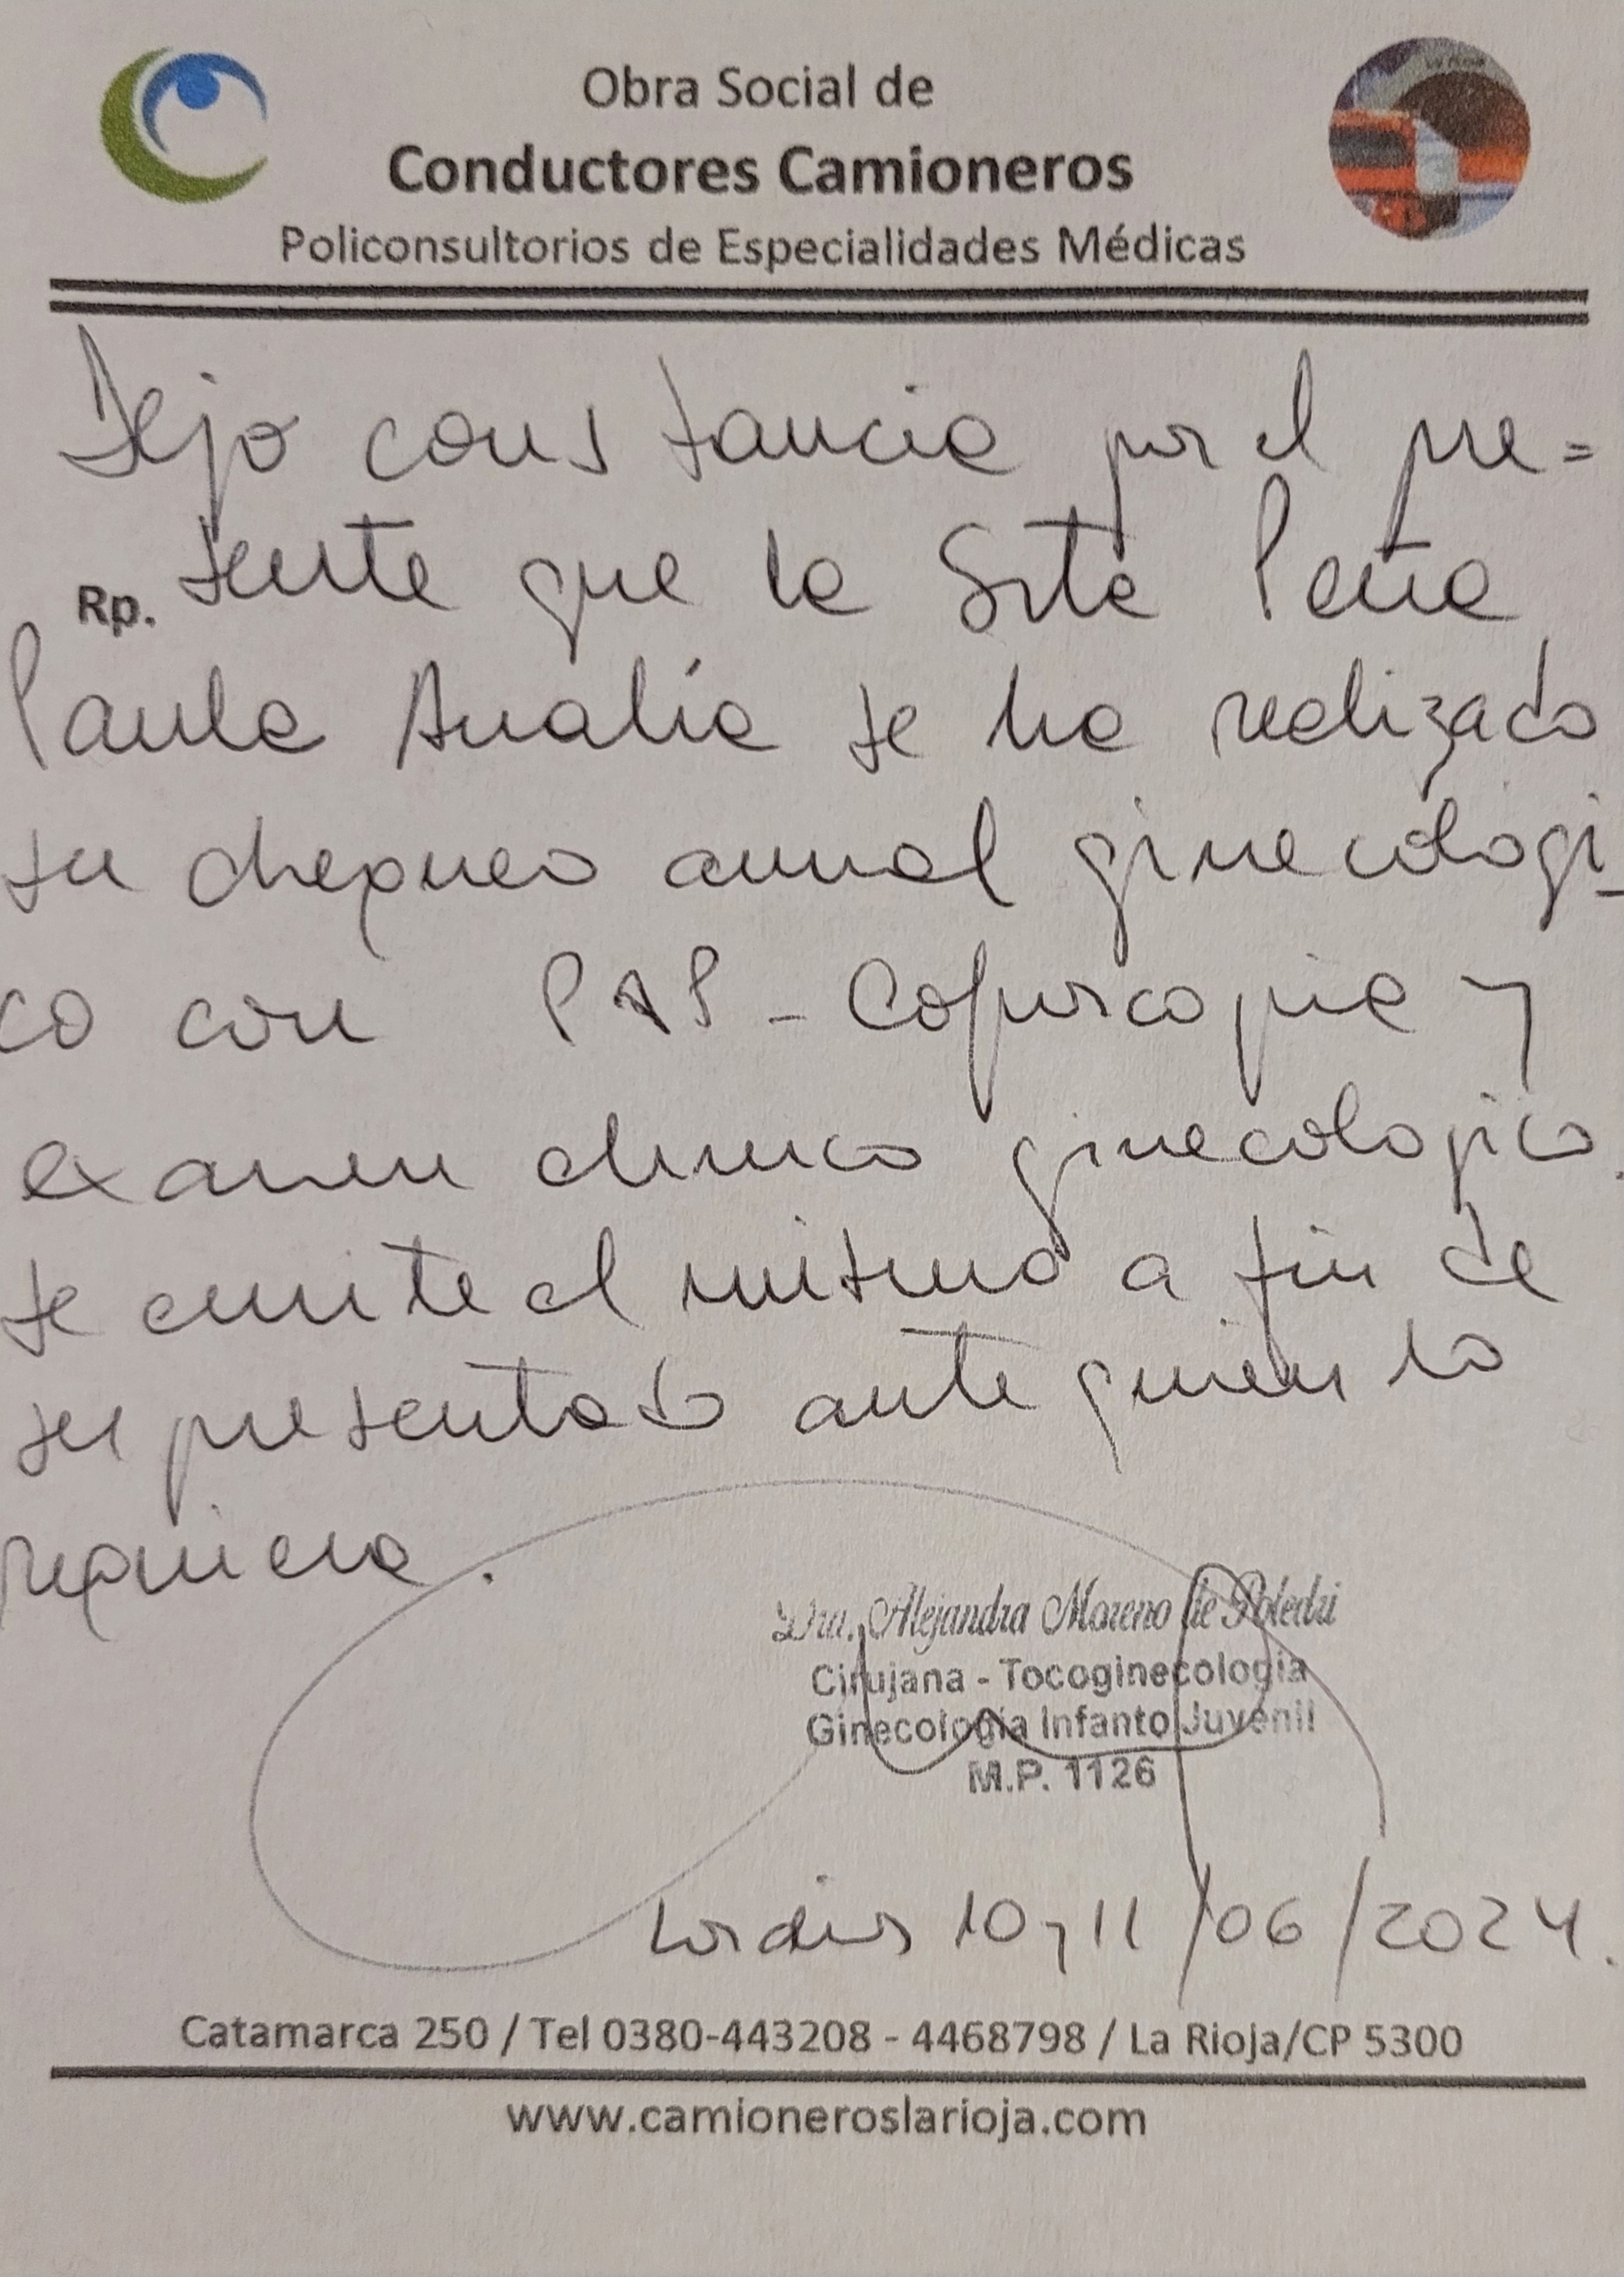 Obra Social de
Conductores Camioneros
Policonsultorios de Especialidades Médicas
Dejo constancia por el pre=
Rp. sente que la Srta Peña
Paula Analía se ha realizado
su chequeo anual ginecologi-
co con PAP - Colposcopia y
examen clinico ginecologico.
se emite el mismo a fin de
ser presentado ante quien lo
requiera.
Dra. Alejandra Moreno de Poledri
Cirujana - Tocoginecología
Ginecología Infanto Juvenil
M.P. 1126
Los dias 10 y 11/06/2024.
Catamarca 250 / Tel 0380-443208 - 4468798 / La Rioja/CP 5300
www.camioneroslarioja.com